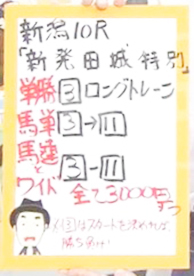 新潟10R
「新発田城特別」
単勝 3 ロングトレーン
馬単 3→11
馬連とワイド 3-11
全て3,000円ずつ
3はスタートを決めれば、
勝ち負け!